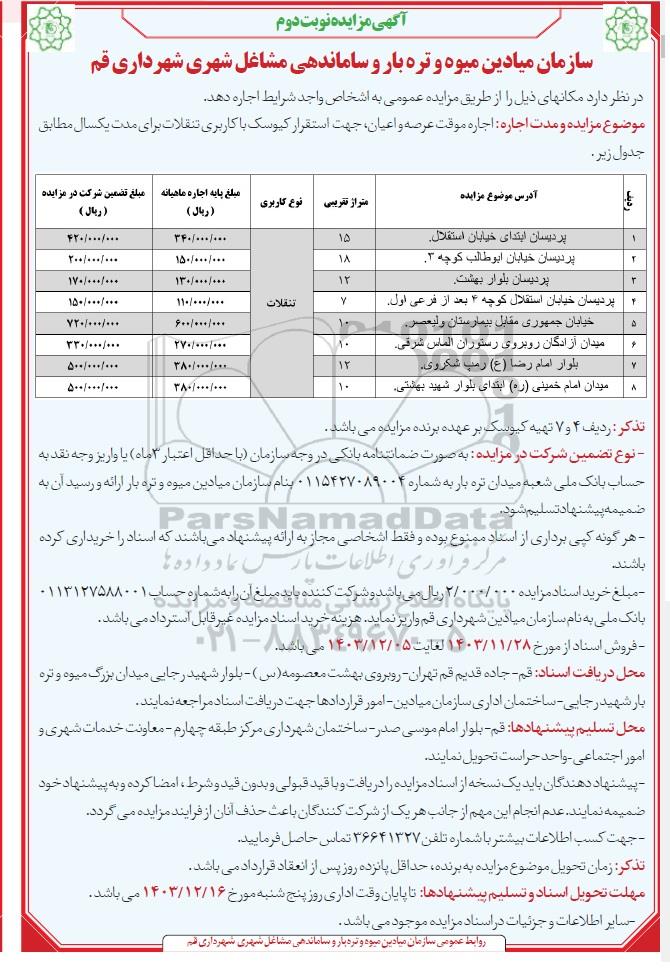 آگهی مزایده نوبت دوم
سازمان میادین میوه و تره بار و ساماندهی مشاغل شهری شهرداری قم
در نظر دارد مکانهای ذیل را از طریق مزایده عمومی به اشخاص واجد شرایط اجاره دهد.
موضوع مزایده و مدت اجاره : اجاره موقت عرصه و اعیان، جهت استقرار کیوسک با کاربری تنقلات برای مدت یکسال مطابق
جدول زیر .
ردیف آدرس موضوع مزایده متراژ تقریبی نوع کاربری مبلغ پایه اجاره ماهیانه ( ریال ) مبلغ تضمین شرکت در مزایده ( ریال )
۱ پردیسان ابتدای خیابان استقلال. ۱۵ ۳۴۰/۰۰۰/۰۰۰ ۴۲۰/۰۰۰/۰۰۰
۲ پردیسان خیابان ابوطالب کوچه ۳. ۱۸ ۱۵۰/۰۰۰/۰۰۰ ۲۰۰/۰۰۰/۰۰۰
۳ پردیسان بلوار بهشت. ۱۲ ۱۳۰/۰۰۰/۰۰۰ ۱۷۰/۰۰۰/۰۰۰
۴ پردیسان خیابان استقلال کوچه ۴ بعد از فرعی اول. ۷ تنقلات ۱۱۰/۰۰۰/۰۰۰ ۱۵۰/۰۰۰/۰۰۰
۵ خیابان جمهوری مقابل بیمارستان ولیعصر. ۱۰ ۶۰۰/۰۰۰/۰۰۰ ۷۲۰/۰۰۰/۰۰۰
۶ میدان آزادگان روبروی رستوران الماس شرقی. ۱۰ ۲۷۰/۰۰۰/۰۰۰ ۳۳۰/۰۰۰/۰۰۰
۷ بلوار امام رضا (ع) رمپ شکروی. ۱۲ ۳۸۰/۰۰۰/۰۰۰ ۵۰۰/۰۰۰/۰۰۰
۸ میدان امام خمینی (ره) ابتدای بلوار شهید بهشتی. ۱۰ ۳۸۰/۰۰۰/۰۰۰ ۵۰۰/۰۰۰/۰۰۰
تذکر : ردیف ۴ و ۷ تهیه کیوسک بر عهده برنده مزایده می باشد .
- نوع تضمین شرکت در مزایده : به صورت ضمانتنامه بانکی در وجه سازمان (با حداقل اعتبار ۳ماه) یا واریز وجه نقد به
حساب بانک ملی شعبه میدان تره بار به شماره ۰۱۱۵۴۲۷۰۸۹۰۰۴ بنام سازمان میادین میوه و تره بار ارائه و رسید آن به
ضمیمه پیشنهاد تسلیم شود.
- هر گونه کپی برداری از اسناد ممنوع بوده و فقط اشخاصی مجاز به ارائه پیشنهاد می باشند که اسناد را خریداری کرده
باشند.
-مبلغ خرید اسناد مزایده ۲/۰۰۰/۰۰۰ ریال می باشد و شرکت کننده باید مبلغ آن را به شماره حساب ۰۱۱۳۱۲۷۵۸۸۰۰۱
بانک ملی به نام سازمان میادین شهرداری قم واریز نماید. هزینه خرید اسناد مزایده غیرقابل استرداد می باشد .
-فروش اسناد از مورخ ۱۴۰۳/۱۱/۲۸ لغایت ۱۴۰۳/۱۲/۰۵ می باشد.
محل دریافت اسناد: قم-جاده قدیم قم تهران-روبروی بهشت معصومه(س)-بلوار شهید رجایی میدان بزرگ میوه و تره
بار شهید رجایی-ساختمان اداری سازمان میادین-امور قراردادها جهت دریافت اسناد مراجعه نمایند .
محل تسلیم پیشنهادها: قم-بلوار امام موسی صدر-ساختمان شهرداری مرکز طبقه چهارم-معاونت خدمات شهری و
امور اجتماعی-واحد حراست تحویل نمایند.
-پیشنهاد دهندگان باید یک نسخه از اسناد مزایده را دریافت و با قید قبولی و بدون قید و شرط ، امضا کرده و به پیشنهاد خود
ضمیمه نمایند. عدم انجام این مهم از جانب هر یک از شرکت کنندگان باعث حذف آنان از فرایند مزایده می گردد .
-جهت کسب اطلاعات بیشتر با شماره تلفن ۳۶۶۴۱۳۲۷ تماس حاصل فرمایید.
تذکر : زمان تحویل موضوع مزایده به برنده، حداقل پانزده روز پس از انعقاد قرارداد می باشد .
مهلت تحویل اسناد و تسلیم پیشنهادها: تا پایان وقت اداری روز پنج شنبه مورخ ۱۴۰۳/۱۲/۱۶ می باشد .
-سایر اطلاعات و جزئیات در اسناد مزایده موجود می باشد .
روابط عمومی سازمان میادین میوه و تره بار و ساماندهی مشاغل شهری شهرداری قم
ParsNamadData
مرکز فرآوری اطلاعات پارس نماد داده ها
پایگاه اطلاع رسانی مناقصه و مزایده
۰۲۱-۸۸۳۴۹۶۷۰-۵